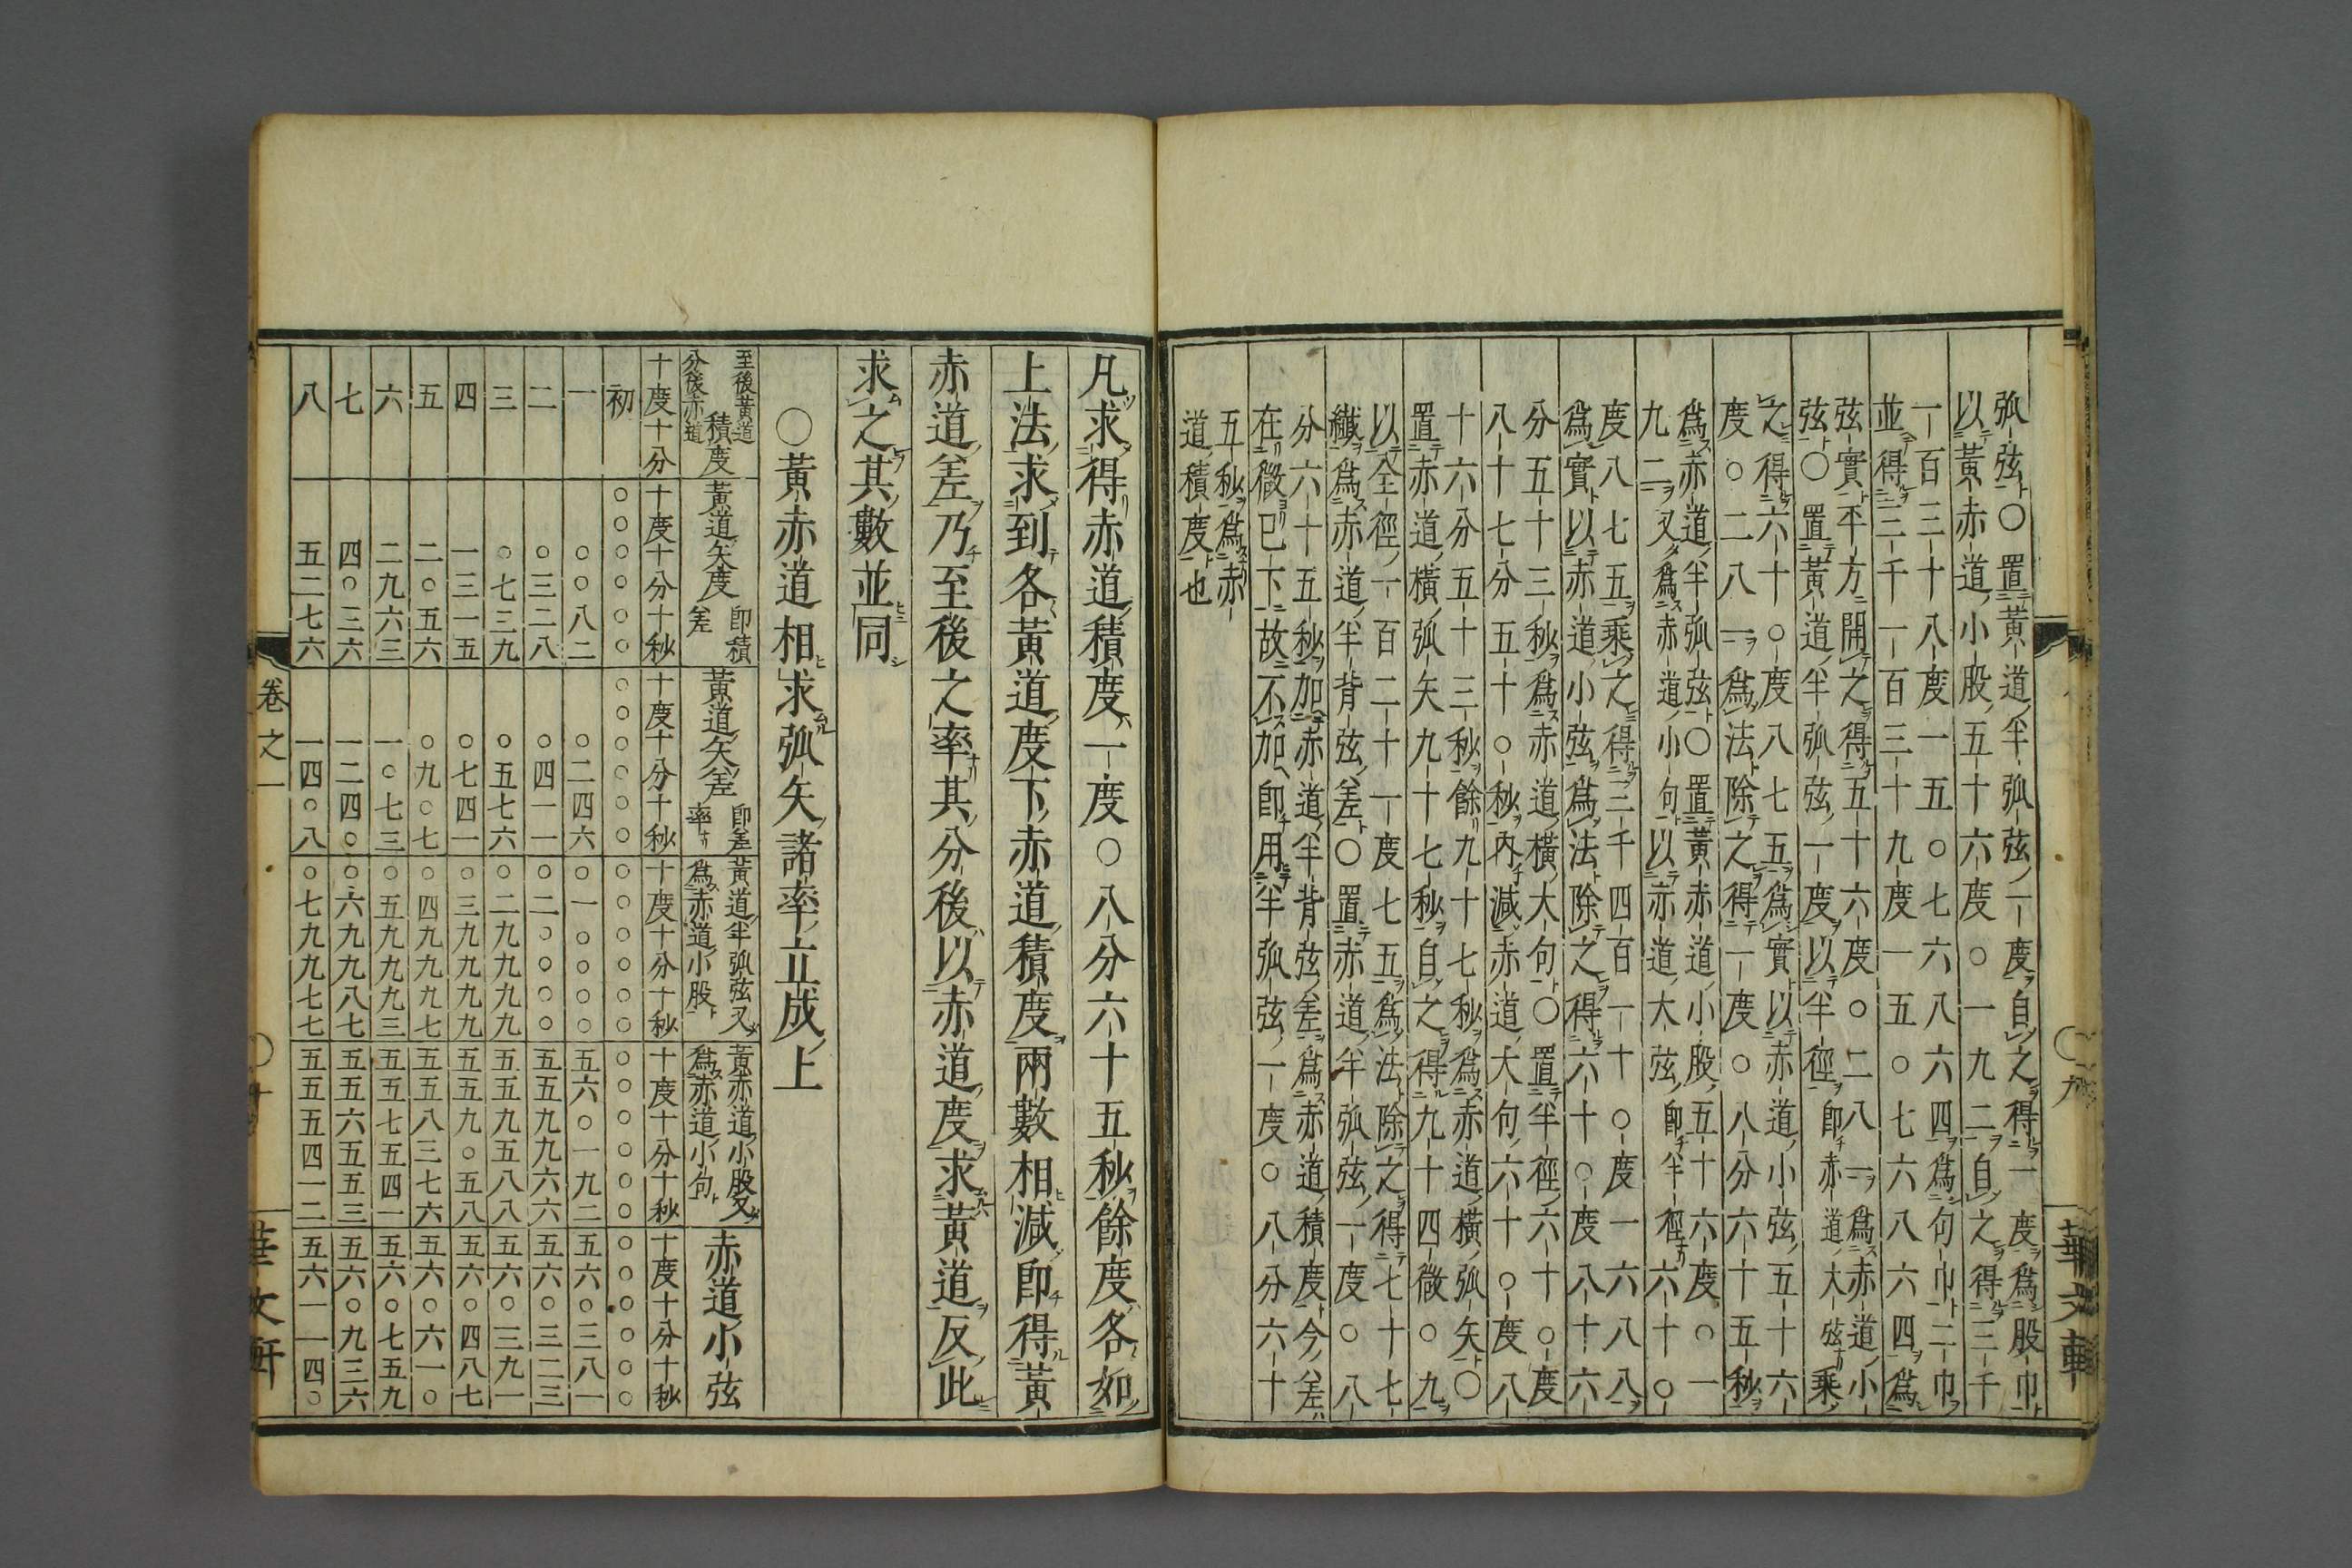 弧弦〇置黃道半弧弦一度自之得一度爲股巾
以黃赤道小股五十六度〇一九二自之得三千
一百三十八度一五〇七六八六四爲句巾二巾
並得三千一百三十九度一五〇七六八六四爲
弦實平方開之得五十六度〇二八一爲赤道小
弦〇置黃道半弧弦一度以半徑即赤道大弦乘
之得六十〇度八七五爲實以赤道小弦五十六
度〇二八一爲法除之得一度〇八分六十五秒
爲赤道半弧弦〇置黃赤道小股五十六度〇一
九二又爲赤道小句以赤道大弦即半徑六十〇
度八七五乘之得三千四百一十〇度一六八八
爲實以赤道小弦爲法除之得六十〇度八十六
分五十三秒爲赤道橫大句〇置半徑六十〇度
八十七分五十〇秒內減赤道大句六十〇度八
十六分五十三秒餘九十七秒爲赤道橫弧矢〇
置赤道橫弧矢九十七秒自之得九十四微〇九
以全徑一百二十一度七五爲法除之得七十七
纖爲赤道半背弦差〇置赤道半弧弦一度〇八
分六十五秒加赤道半背弦差爲赤道積度今差
在微已下故不加即用半弧弦一度〇八分六十
五秒爲赤
道積度也
〇九
華文軒
凡求得赤道積度一度〇八分六十五秒餘度各如
上法求到各黃道度下赤道積度兩數相減即得黃
赤道差乃至後之率其分後以赤道度求黃道反此
求之其數並同
〇黃赤道相求弧矢諸率立成上
至後黃道分後赤道積度 黃道矢度即積差 黃道矢差即差率 黃道半弧弦又爲赤道小股 黃赤道小股又爲赤道小句 赤道小弦
十度十分 十度十分十秒 十度十分十秒 十度十分十秒 十度十分十秒 十度十分十秒
初 〇〇〇〇〇 〇〇〇〇〇 〇〇〇〇〇 〇〇〇〇〇〇 〇〇〇〇〇〇
一 〇〇八二 〇二四六 〇一〇〇〇〇 五六〇一九二 五六〇三八一
二 〇三二八 〇四一一 〇二〇〇〇〇 五五九九六六 五六〇三二三
三 〇七三九 〇五七六 〇二九九九九 五五九五八八 五六〇三九一
四 一三一五 〇七四一 〇三九九九九 五五九〇五八 五六〇四八七
五 二〇五六 〇九〇七 〇四九九九七 五五八三七六 五六〇六一〇
六 二九六三 一〇七三 〇五九九九三 五五七五四一 五六〇七五九
七 四〇三六 一二四〇 〇六九九八七 五五六五五三 五六〇九三六
八 五二七六 一四〇八 〇七九九七七 五五五四一二 五六一一四〇
卷之一
〇十
華文軒